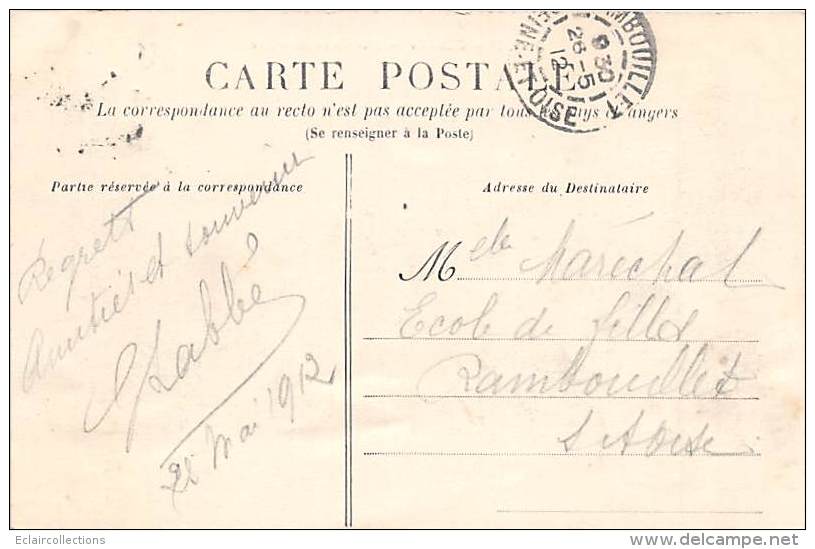 CARTE POSTALE
La correspondance au recto n'est pas acceptée par tous les pays étrangers
(Se renseigner à la Poste)
RAMBOUILLET
9 30
26-5
12
SEINE-ET-OISE
Partie réservée à la correspondance
Regrets
Amitiés et souvenir
Labbé
Mai 1912
Adresse du Destinataire
Melle Maréchal
Ecole de filles
Rambouillet
S et Oise
Eclaircollections
www.delcampe.net